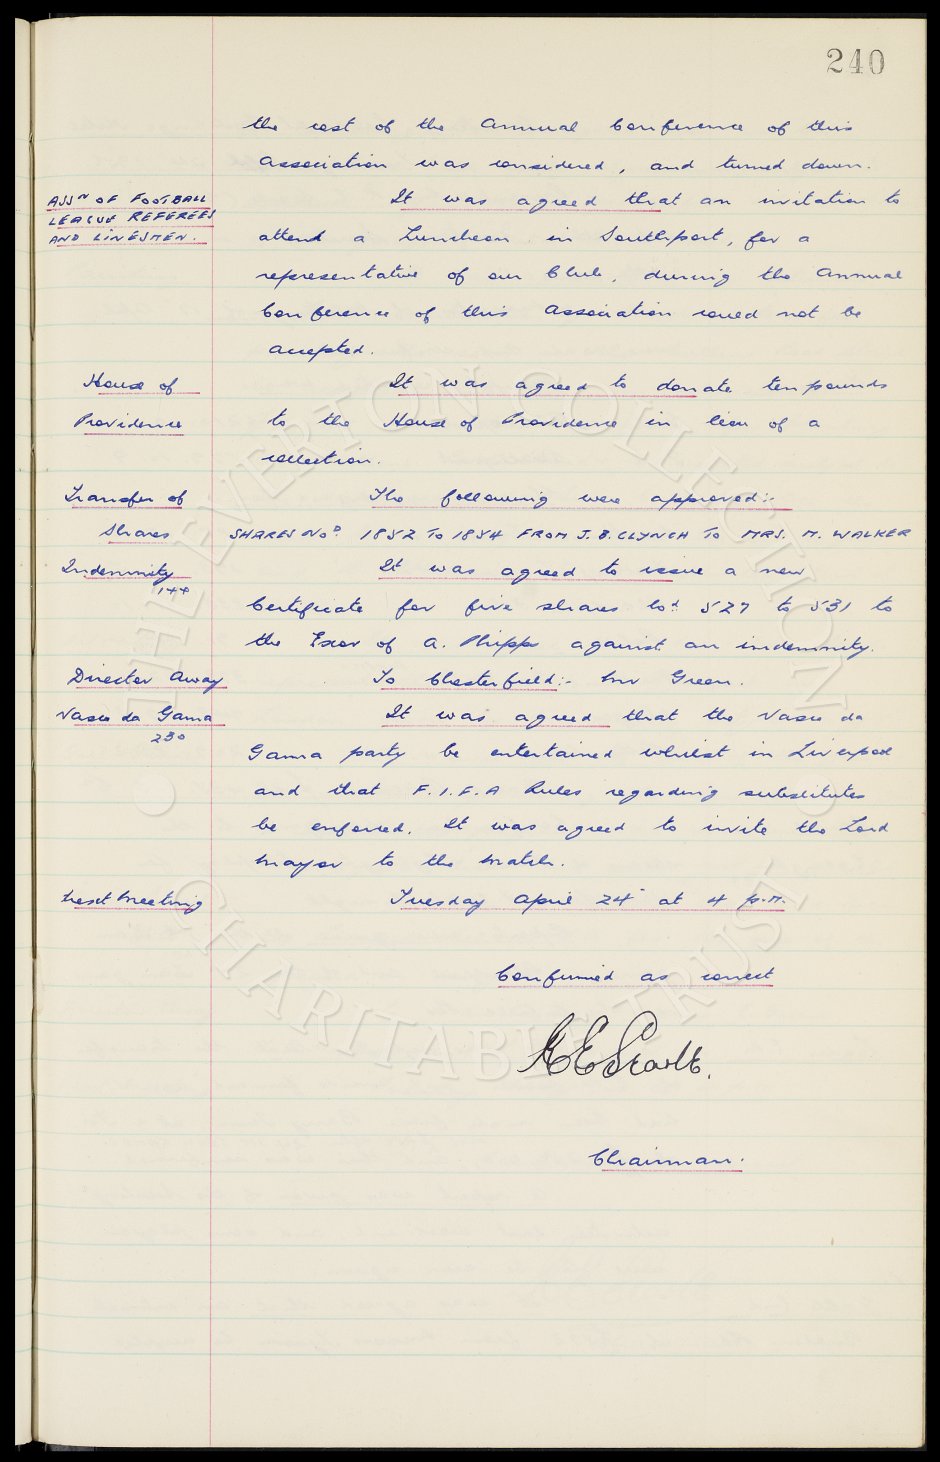 240
the cost of the Annual Conference of this
Association was considered, and turned down.
ASSN OF FOOTBALL
LEAGUE REFEREES
AND LINESMEN.
It was agreed that an invitation to
attend a Luncheon in Southport, for a
representative of our Club, during the Annual
Conference of this Association could not be
accepted.
House of
Providence
It was agreed to donate ten pounds
to the House of Providence in lieu of a
collection.
Transfer of
Shares
The following were approved:-
SHARES NOS 1852 TO 1854 FROM J.B. CLYNCH TO MRS. M. WALKER
Indemnity
144
It was agreed to issue a new
Certificate for five shares Nos 527 to 531 to
the Exor of A. Phipps against an indemnity.
Director Away
To Chesterfield:- Mr Green.
Vasco da Gama
230
It was agreed that the Vasco da
Gama party be entertained whilst in Liverpool
and that F.I.F.A Rules regarding substitutes
be enforced. It was agreed to invite the Lord
Mayor to the match.
Next Meeting
Tuesday April 24th at 4 p.m.
Confirmed as correct
Chairman.
THE EVERTON COLLECTION
CHARITABLE TRUST